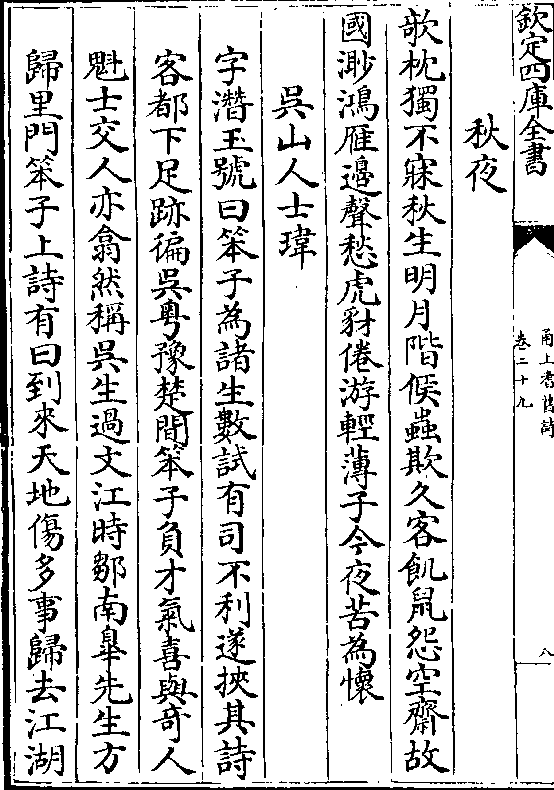 欽定四庫全書
甬上耆舊詩
卷二十九
八
秋夜
欹枕獨不寐秋生明月階候蟲欺久客飢鼠怨空齋故
國渺鴻雁邉聲愁虎豺倦游輕薄子今夜苦為懷
吳山人士瑋
字濳玉號曰笨子為諸生數試有司不利遂挾其詩
客都下足跡徧吳粤豫楚間笨子負才氣喜與奇人
魁士交人亦翕然稱吳生過文江時鄒南臯先生方
歸里門笨子上詩有曰到來天地傷多事歸去江湖